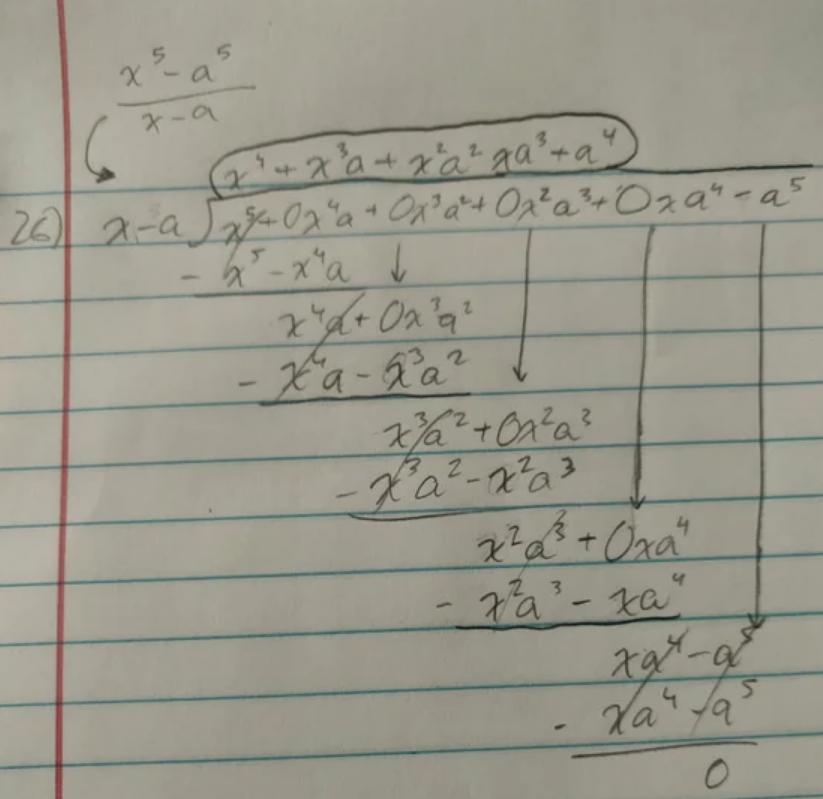 x⁵ - a⁵
x - a
x⁴ + x³a + x²a² xa³ + a⁴
26) x - a ) x⁵ + 0x⁴a + 0x³a² + 0x²a³ + 0xa⁴ - a⁵
- x⁵ - x⁴a
x⁴a + 0x³a²
- x⁴a - x³a²
x³a² + 0x²a³
- x³a² - x²a³
x²a³ + 0xa⁴
- x²a³ - xa⁴
xa⁴ - a⁵
- xa⁴ - a⁵
0